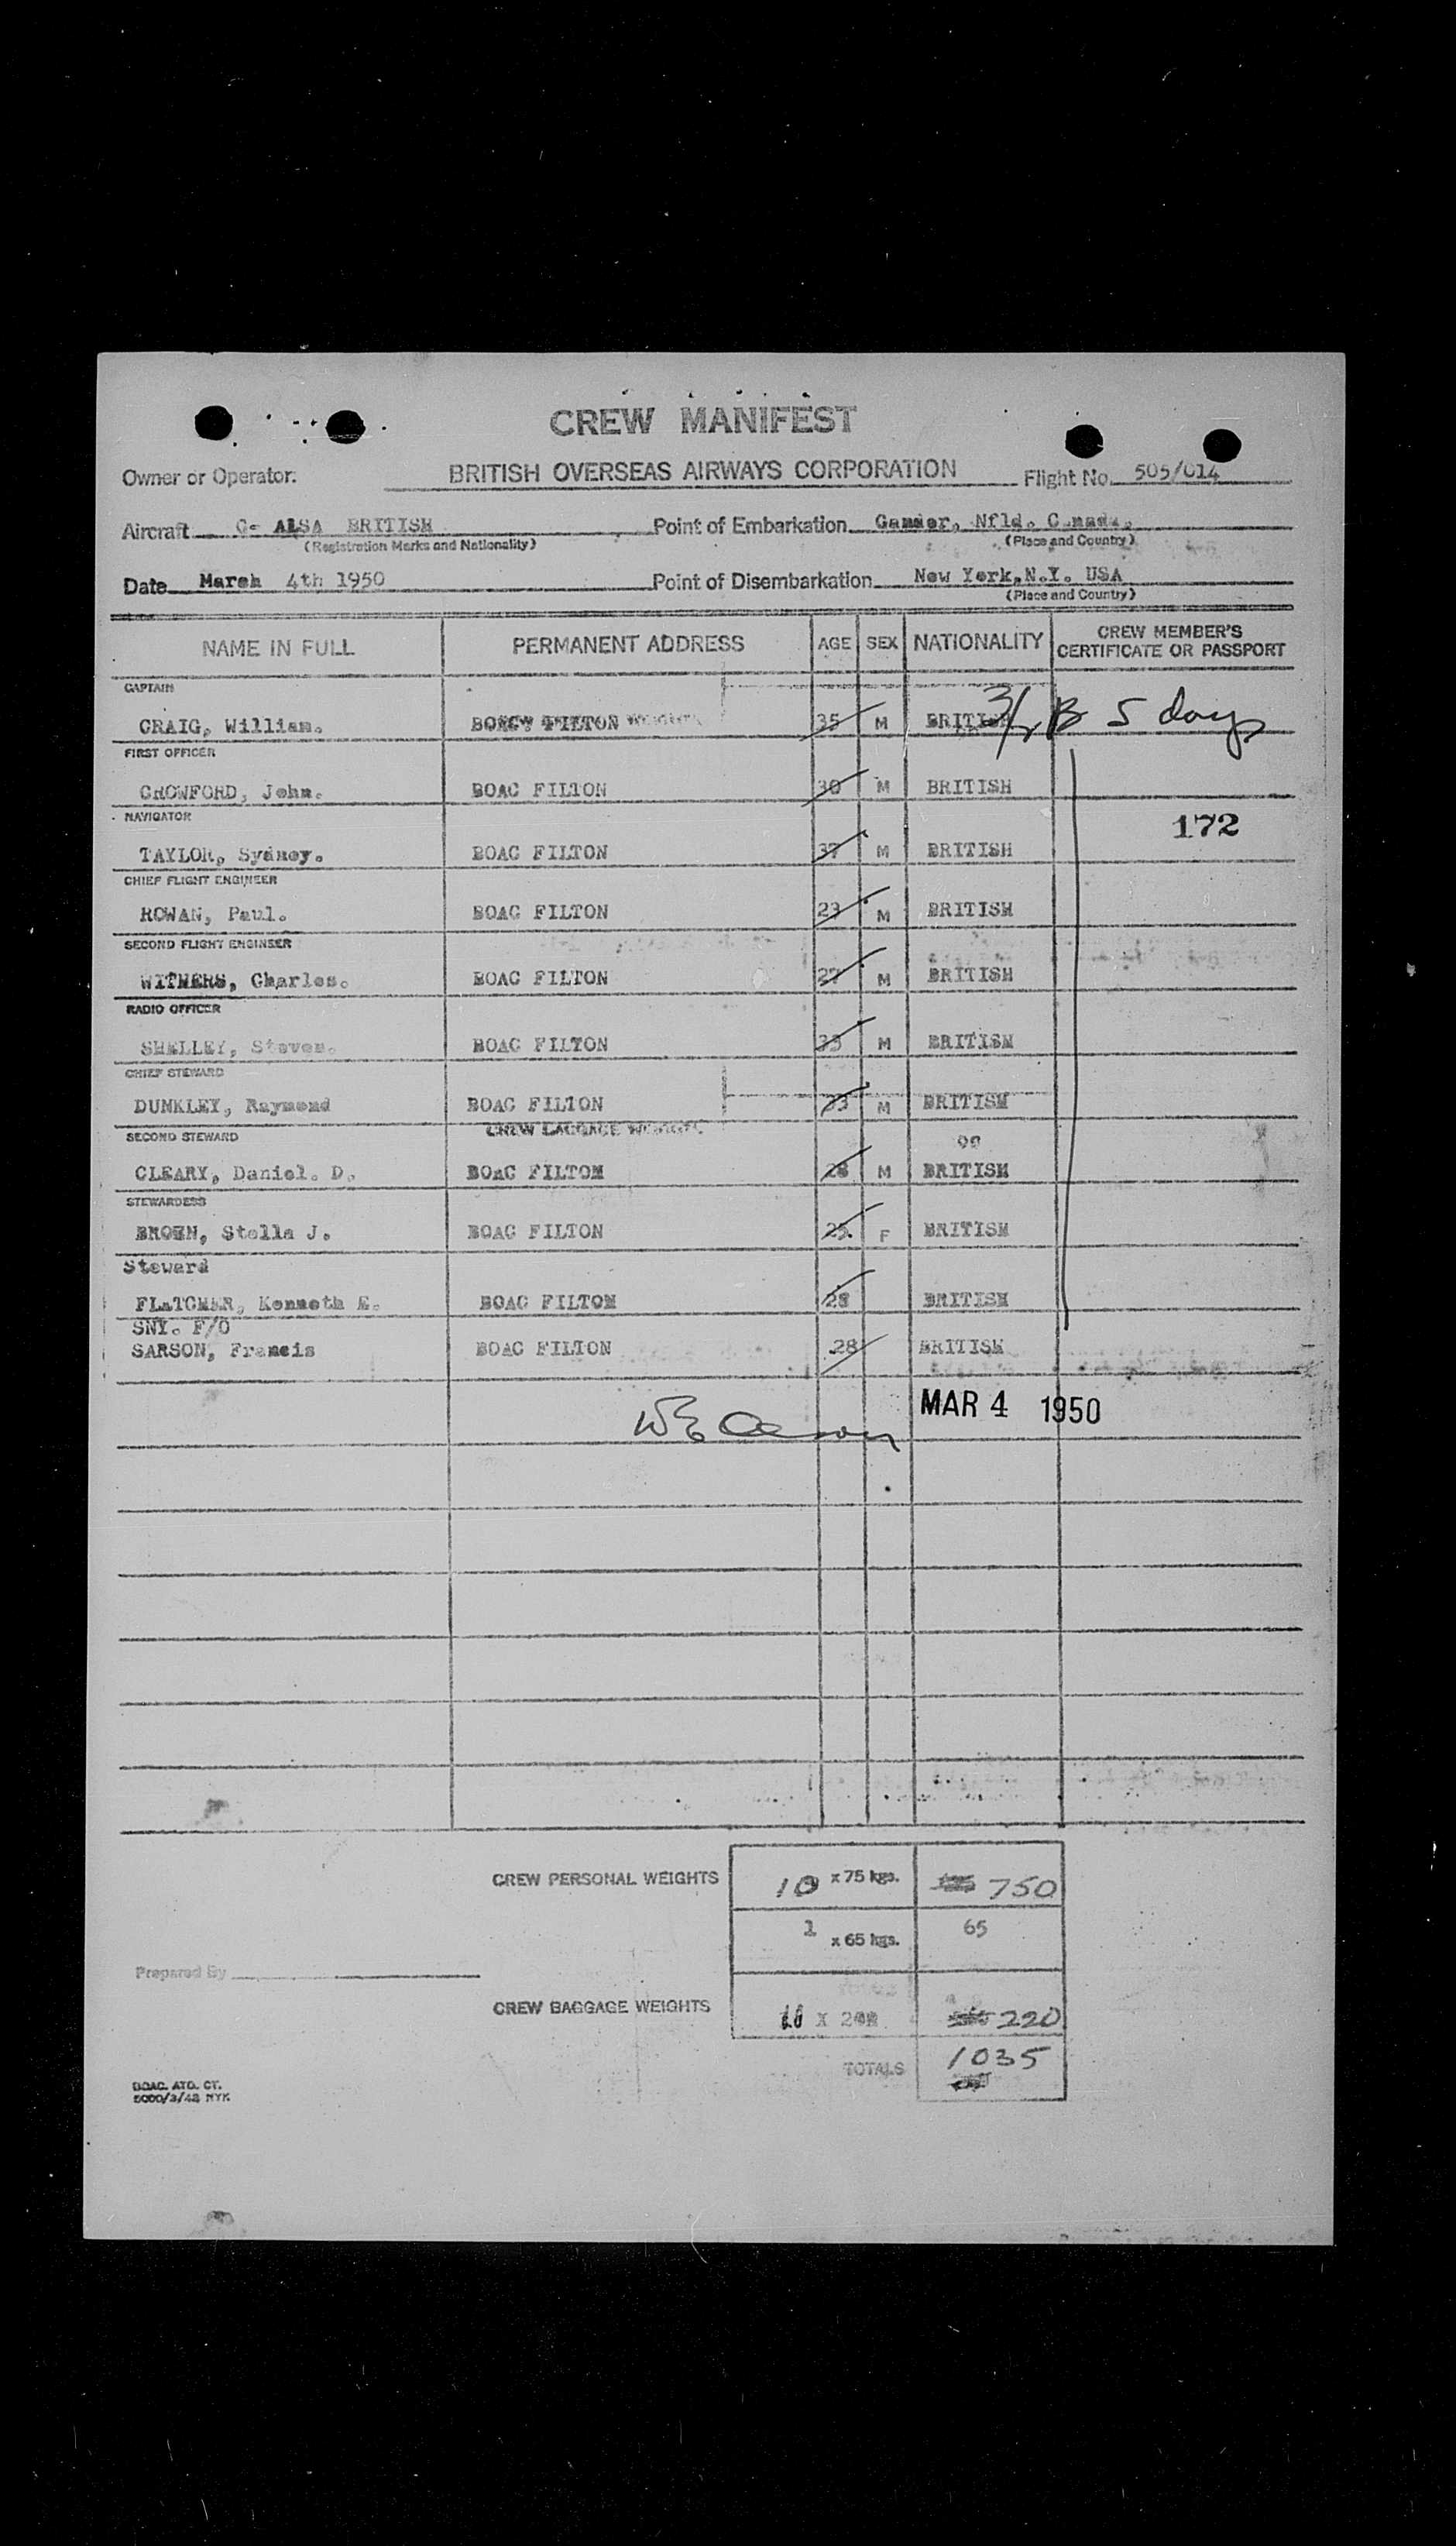 CREW MANIFEST
Owner or Operator: BRITISH OVERSEAS AIRWAYS CORPORATION Flight No. 505/014
Aircraft G- ALSA BRITISH Point of Embarkation Gander, Nfld. Canada.
(Registration Marks and Nationality) (Place and Country)
Date March 4th 1950 Point of Disembarkation New York,N.Y. USA
(Place and Country)
NAME IN FULL PERMANENT ADDRESS AGE SEX NATIONALITY CREW MEMBER'S CERTIFICATE OR PASSPORT
CAPTAIN
CRAIG, William. FILTON 35 M BRITISH 3/1 B 5 days
FIRST OFFICER
CROWFORD, John. BOAC FILTON 30 M BRITISH
NAVIGATOR 172
TAYLOR, Sydney. BOAC FILTON 37 M BRITISH
CHIEF FLIGHT ENGINEER
ROWAN, Paul. BOAC FILTON 23 M BRITISH
SECOND FLIGHT ENGINEER
WITHERS, Charles. BOAC FILTON 27 M BRITISH
RADIO OFFICER
SHELLEY, Steven. BOAC FILTON 35 M BRITISH
CHIEF STEWARD
DUNKLEY, Raymond BOAC FILTON 33 M BRITISH
CREW BAGGAGE WEIGHTS
SECOND STEWARD
CLEARY, Daniel. D. BOAC FILTON 28 M BRITISH
STEWARDESS
BROWN, Stella J. BOAC FILTON 25. F BRITISH
Steward
FLETCHER, Kenneth E. BOAC FILTON 28 BRITISH
SNY. F/O
SARSON, Francis BOAC FILTON 28 BRITISH
MAR 4 1950
CREW PERSONAL WEIGHTS 10 x 75 kgs. 750
1 x 65 kgs. 65
Prepared By
CREW BAGGAGE WEIGHTS 220
TOTALS 1035
BOAC. ATO. CT.
5000/3/48 NYK